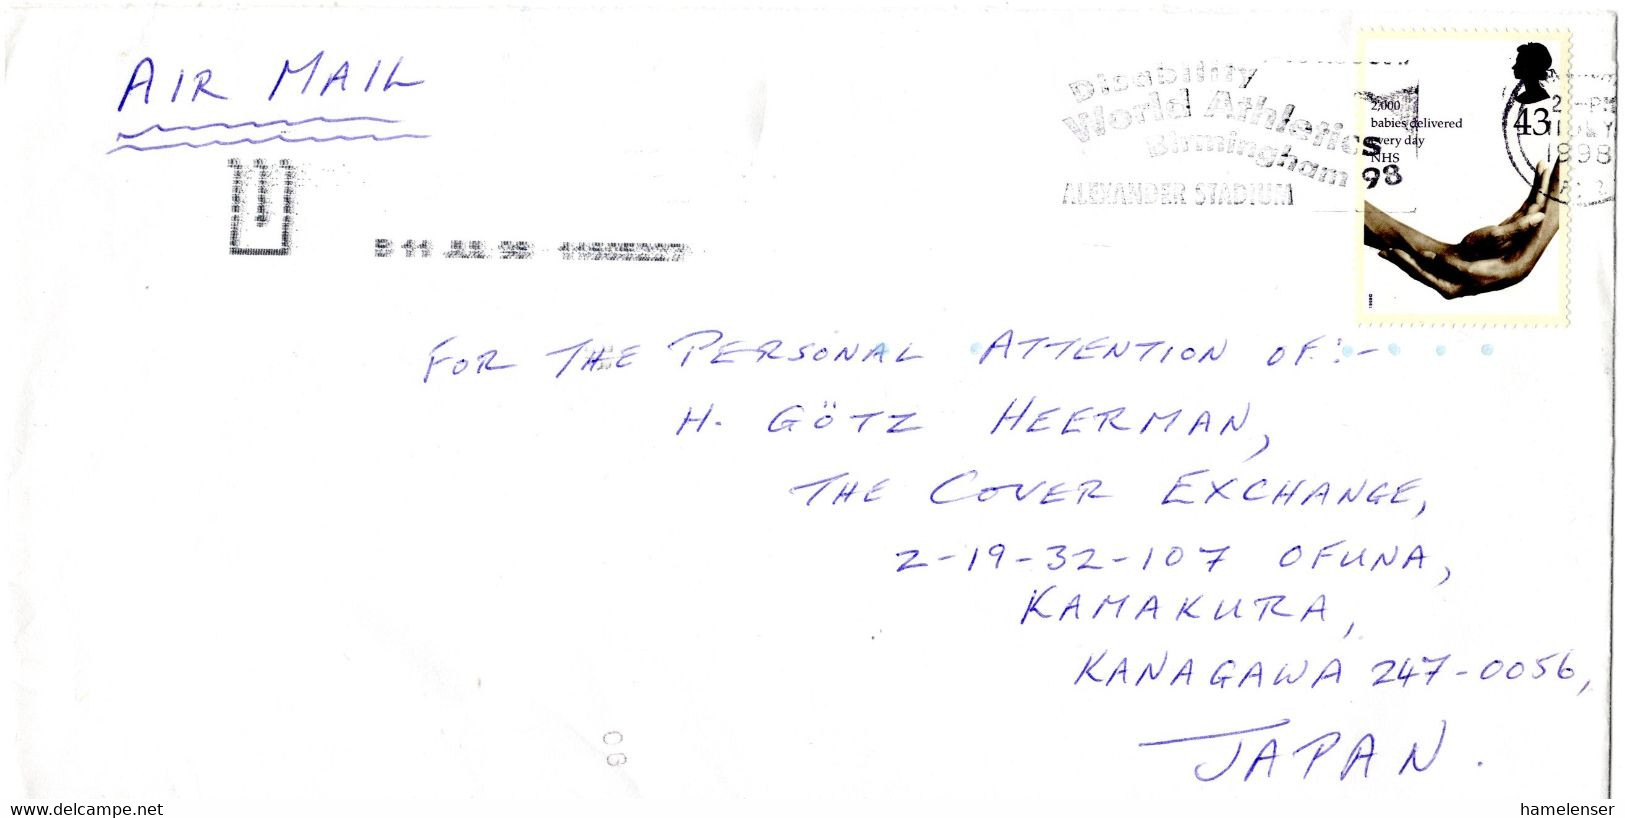 AIR MAIL
Disability
World Athletics
Birmingham 98
ALEXANDER STADIUM
2,000
babies delivered
every day
NHS
43
1998
11 JUL 98
FOR THE PERSONAL ATTENTION OF:-
H. GÖTZ HEERMAN,
THE COVER EXCHANGE,
2-19-32-107 OFUNA,
KAMAKURA,
KANAGAWA 247-0056,
JAPAN.
www.delcampe.net
hamelenser